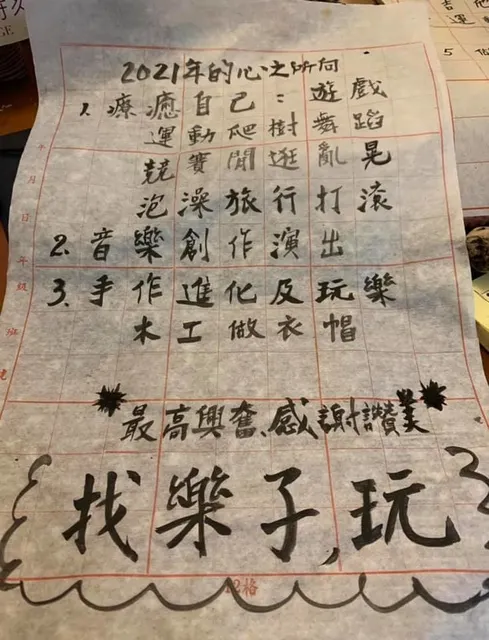 2021年的心之所向
1. 療癒自己：遊戲
運動爬樹舞蹈
競賽閒逛亂晃
泡澡旅行打滾
2. 音樂創作演出
3. 手作進化及玩樂
木工做衣帽
最高興奮、感謝讚美
找樂子，玩
年級 班
月 日
格